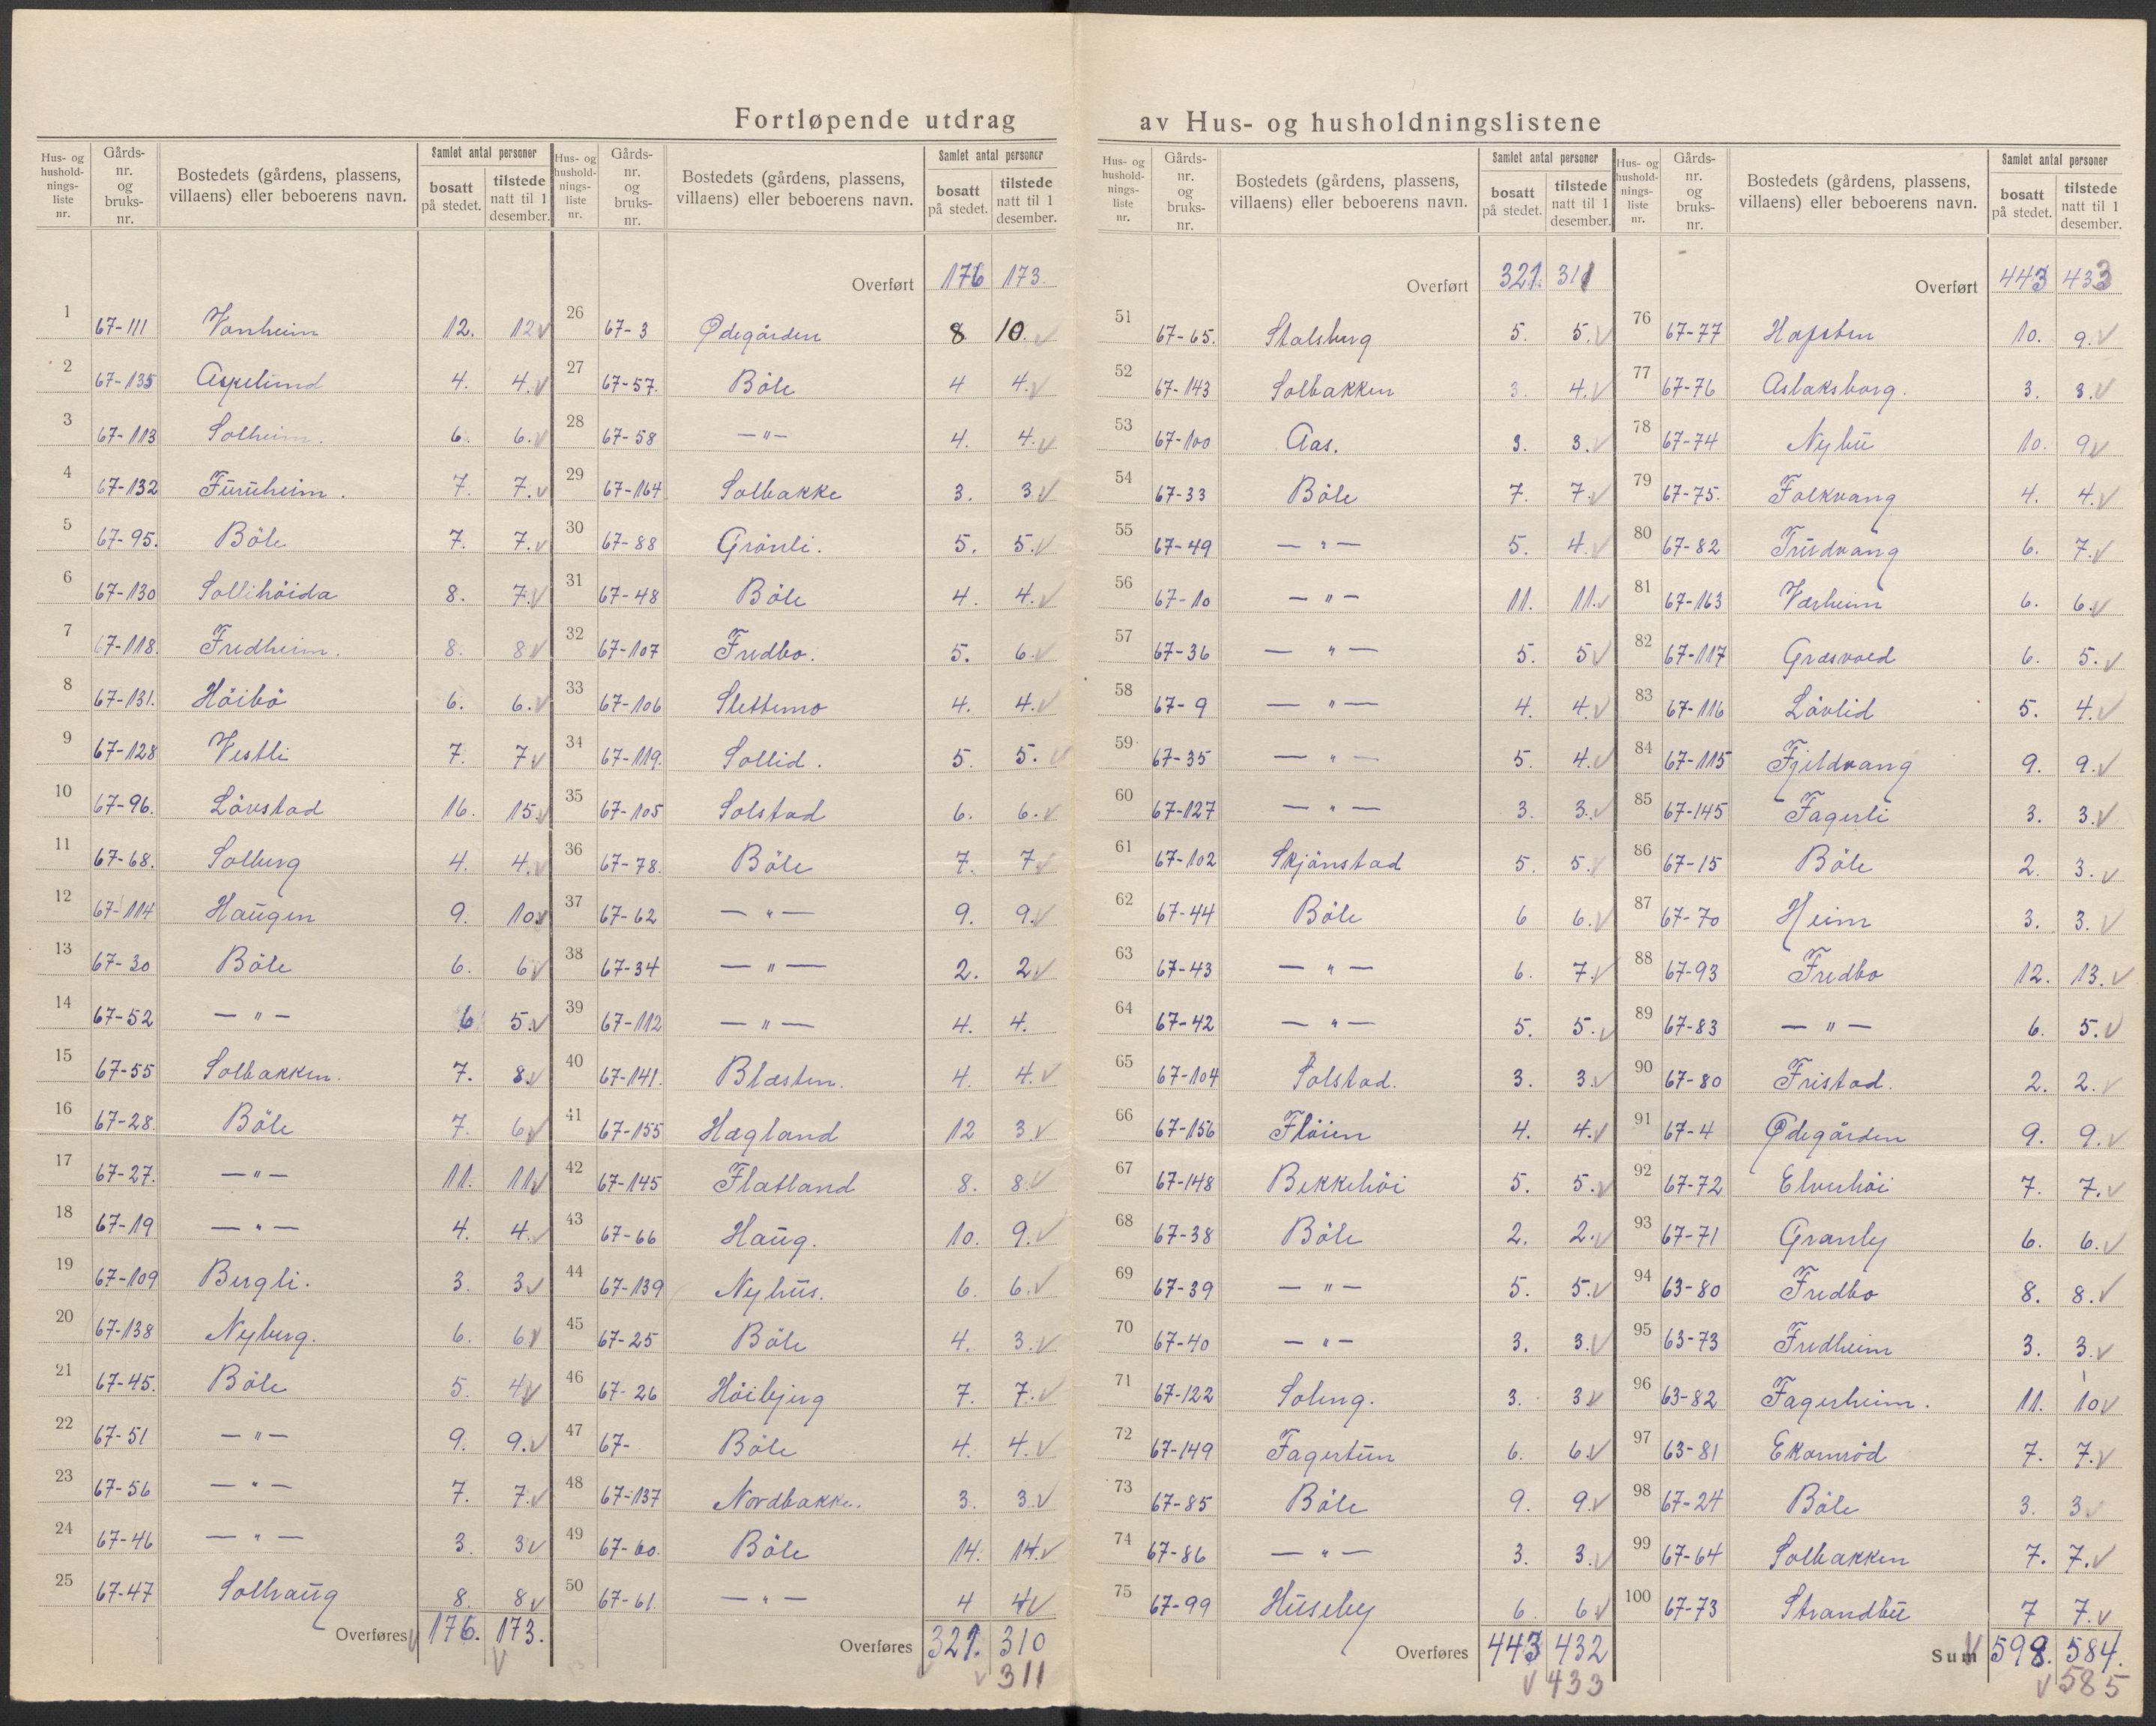 Fortløpende utdrag av Hus- og husholdningslistene
Hus- og husholdnings- liste nr. | Gårds- nr. og bruks- nr. | Bostedets (gårdens, plassens, villaens) eller beboerens navn. | Samlet antal personer: bosatt på stedet. | tilstede natt til 1 desember.
1 67-111 Vonheim 12. 12 v
2 67-135 Aspelund 4. 4. v
3 67-113 Solheim. 6. 6. v
4 67-132 Furuheim. 7. 7. v
5 67-95. Böle 7. 7. v
6 67-130 Sollihöida 8. 7. v
7 67-118. Fredheim. 8. 8 v
8 67-131. Höibö 6. 6. v
9 67-128 Vestli 7. 7 v
10 67-96. Lövstad 16. 15. v
11 67-68. Solberg 4. 4. v
12 67-114 Haugen 9. 10 v
13 67-30 Böle 6. 6 v
14 67-52 — " — 6 5. v
15 67-55 Solbakken. 7. 8. v
16 67-28. Böle 7. 6 v
17 67-27. — " — 11. 11 v
18 67-19 — " — 4. 4. v
19 67-109 Bergli. 3. 3 v
20 67-138 Nyberg. 6. 6 v
21 67-45. Böle 5. 4 v
22 67-51 — " — 9. 9. v
23 67-56 — " — 7. 7. v
24 67-46 — " — 3. 3 v
25 67-47 Solhaug 8. 8 v
Overføres v 176. 173.
v
Overført 176 173.
26 67-3 Ødegården 8 10. v
27 67-57. Böle 4 4. v
28 67-58 — " — 4. 4. v
29 67-164 Solbakke 3. 3. v
30 67-88 Grönli. 5. 5. v
31 67-48 Böle 4. 4. v
32 67-107 Fredbo. 5. 6. v
33 67-106 Slettemo 4. 4. v
34 67-119. Sollid. 5. 5. v
35 67-105 Solstad 6. 6. v
36 67-78. Böle 7. 7 v
37 67-62 — " — 9. 9. v
38 67-34 — " — 2. 2 v
39 67-112 — " — 4. 4.
40 67-141. Blæsten. 4. 4. v
41 67-155 Hægland 12 3 v
42 67-145 Flatland 8. 8. v
43 67-66 Haug. 10. 9. v
44 67-139 Nyhus. 6. 6. v
45 67-25 Böle 4. 3. v
46 67-26 Höibjerg 7. 7. v
47 67- Böle 4. 4. v
48 67-137 Nordbakke. 3. 3. v
49 67-60. Böle 14. 14. v
50 67-61. — " — 4 4 v
Overføres 321. 310
v v 311
Overført 321. 311
51 67-65. Stalsberg 5. 5. v
52 67-143 Solbakken 3. 4. v
53 67-100 Aas. 3. 3. v
54 67-33 Böle 7. 7. v
55 67-49 — " — 5. 4. v
56 67-10 — " — 11. 11. v
57 67-36 — " — 5. 5 v
58 67-9 — " — 4. 4. v
59 67-35 — " — 5. 4. v
60 67-127 — " — 3. 3. v
61 67-102 Skjönstad 5. 5. v
62 67-44 Böle 6 6. v
63 67-43 — " — 6. 7. v
64 67-42 — " — 5. 5. v
65 67-104 Solstad. 3. 3. v
66 67-156 Flöien 4. 4. v
67 67-148 Bekkehöi 5. 5. v
68 67-38 Böle 2. 2. v
69 67-39 — " — 5. 5. v
70 67-40 — " — 3. 3. v
71 67-122 Soleng. 3. 3 v
72 67-149 Fagertun 6. 6 v
73 67-85 Böle 9. 9. v
74 67-86 — " — 3. 3. v
75 67-99 Huseby 6. 6 v
Overføres 443 432
v 433
Overført 443 433
76 67-77 Hafsten 10. 9. v
77 67-76 Aslaksborg. 3. 3. v
78 67-74 Nybu 10. 9 v
79 67-75. Folkvang 4. 4. v
80 67-82 Trudvang 6. 7. v
81 67-163 Værheim 6. 6. v
82 67-117 Græsvold 6. 5. v
83 67-116 Lövlid 5. 4. v
84 67-115 Fjeldvang 9. 9. v
85 67-145 Fagerli 3. 3. v
86 67-15 Böle 2. 3. v
87 67-70 Heim 3. 3. v
88 67-93 Fredbo 12. 13. v
89 67-83 — " — 6. 5. v
90 67-80 Fristad. 2. 2. v
91 67-4 Ødegården 9. 9. v
92 67-72 Elverhöi 7. 7. v
93 67-71 Granly 6. 6. v
94 63-80 Fredbo 8. 8. v
95 63-73 Fredheim 3. 3. v
96 63-82 Fagerheim. 11. 10 v
97 63-81 Ekornröd 7. 7. v
98 67-24 Böle 3. 3. v
99 67-64 Solbakken 7. 7. v
100 67-73 Strandbu 7 7. v
Sum v 598. 584.
v 585